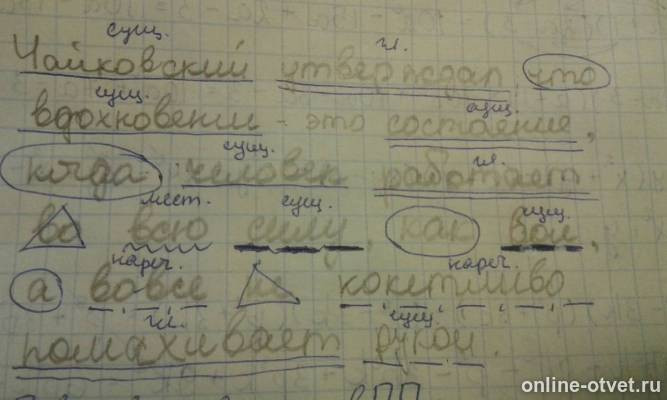 сущ. гл.
Чайковский утверждал, что
сущ. сущ.
вдохновении - это состояние,
сущ. гл.
когда человек работает
мест. сущ. сущ.
во всю силу, как вол,
нареч. нареч.
а вовсе не кокетливо
гл. сущ
помахивает рукой.
online-otvet.ru